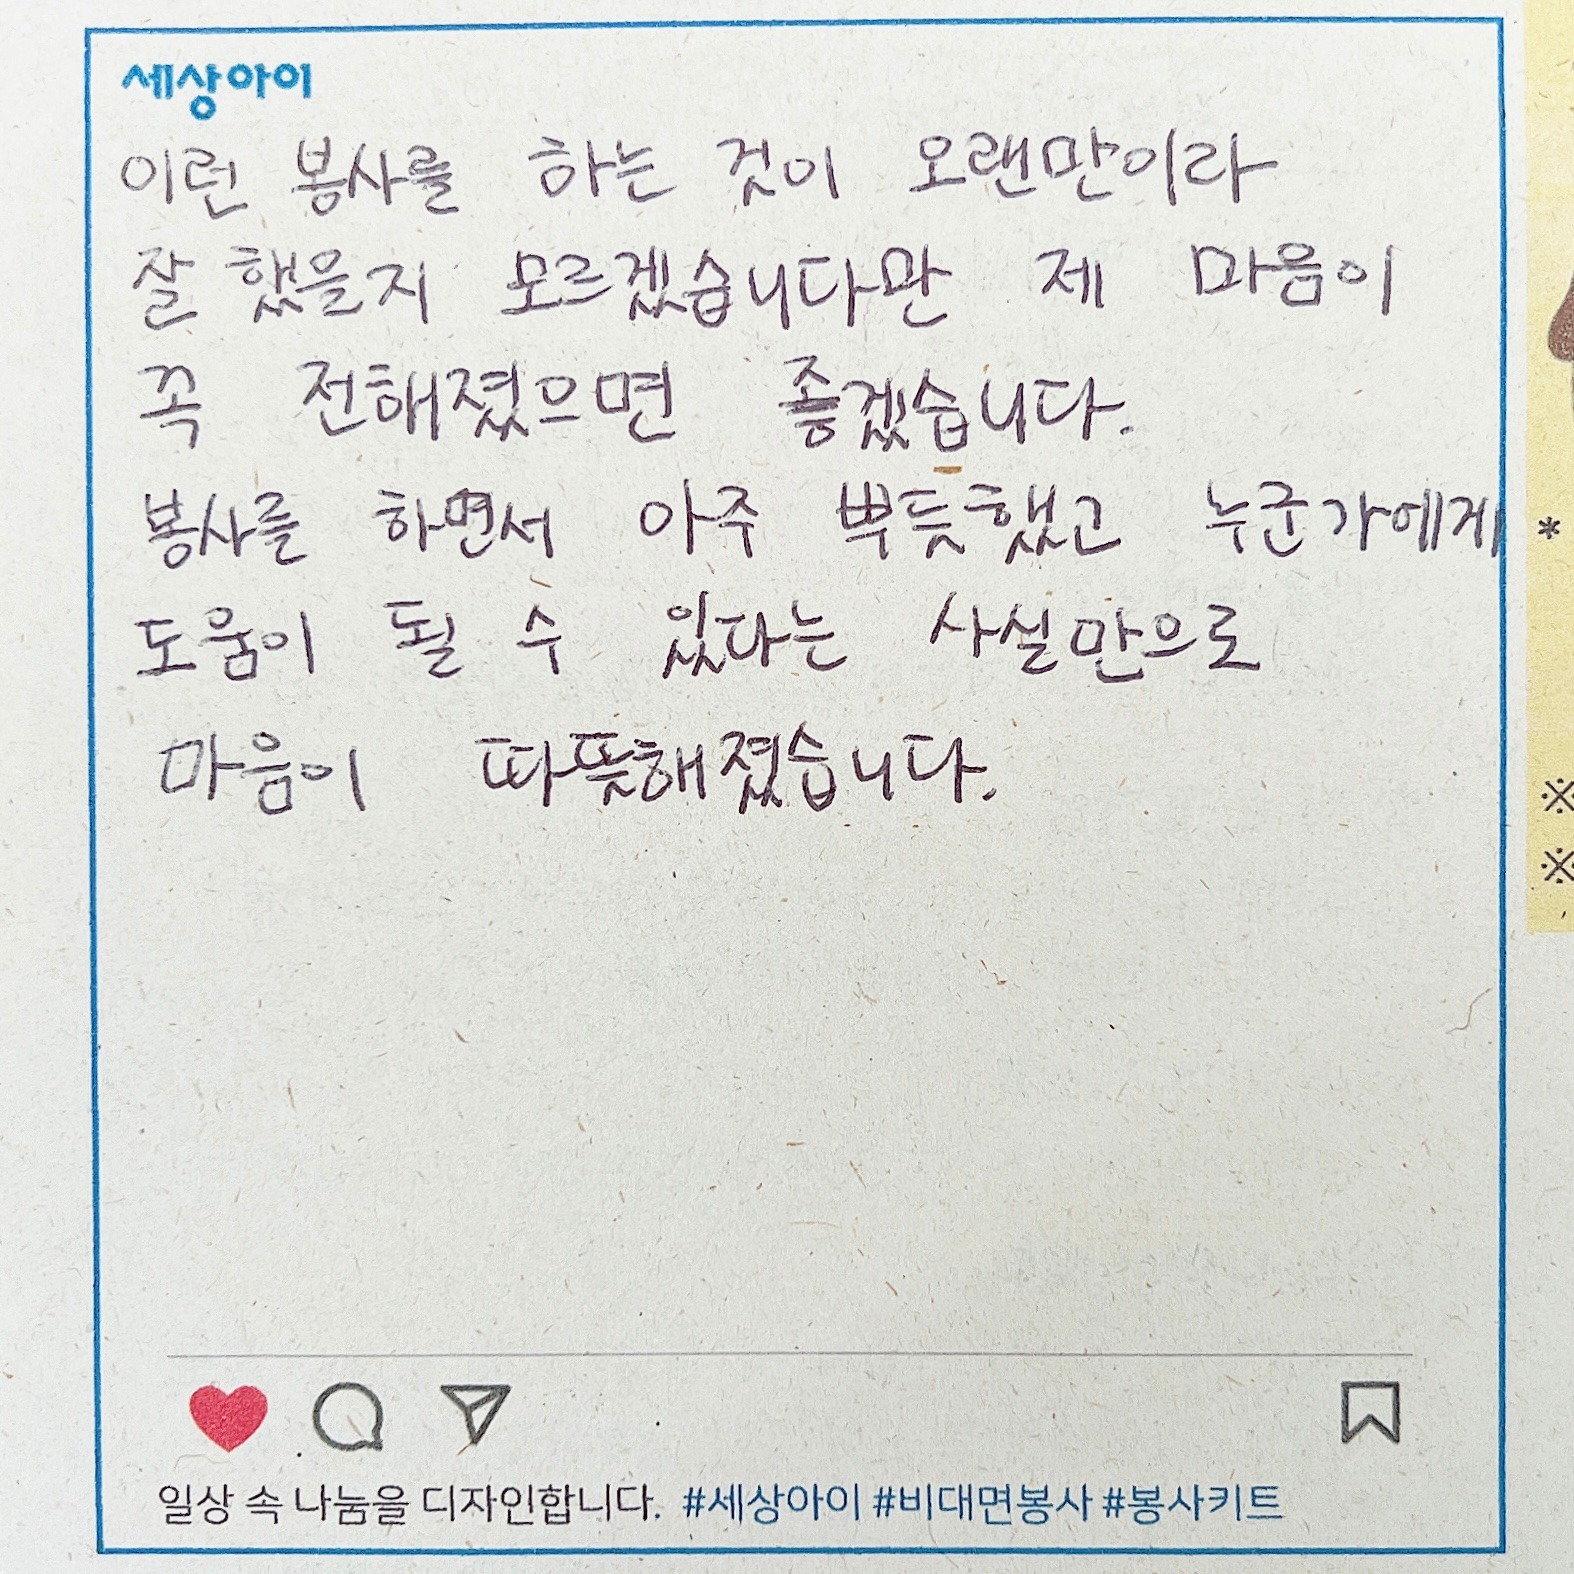 세상아이
이런 봉사를 하는 것이 오랜만이라
잘 했을지 모르겠습니다만 제 마음이
꼭 전해졌으면 좋겠습니다.
봉사를 하면서 아주 뿌듯했고 누군가에게
*
도움이 될 수 있다는 사실만으로
마음이 따뜻해졌습니다.
※
※
일상 속 나눔을 디자인합니다. #세상아이 #비대면봉사 #봉사키트